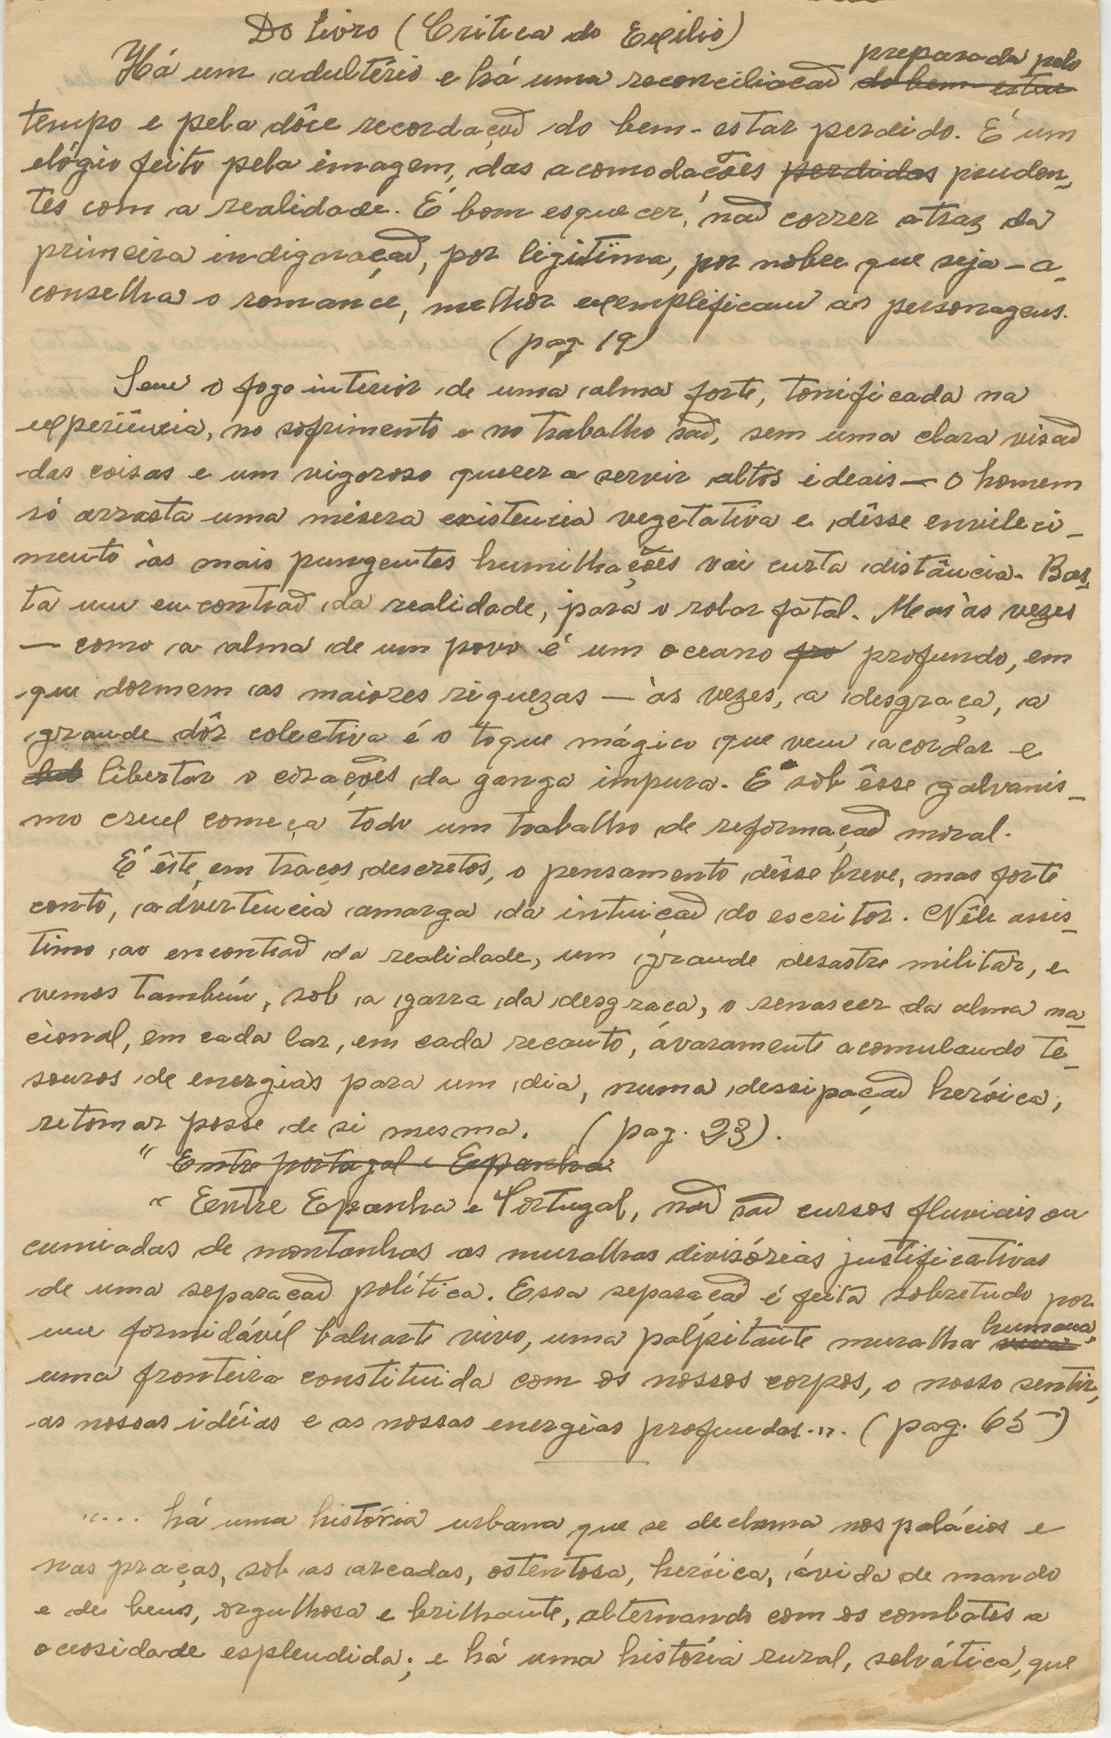 Do livro (Critica do Exilio)
Há um adultério e há uma reconciliação do bem estar preparada pelo
tempo e pela dôce recordação do bem-estar perdido. É um
elógio feito pela imagem, das acomodações perdidas pruden-
tes com a realidade. É bom esquecer, não correr atraz da
primeira indignação, por legitima, por nobre que seja - a-
conselha o romance, melhor exemplificam as personagens.
(pag 19)
Sem o fogo interior de uma alma forte, tonificada na
experiência, no sofrimento e no trabalho são, sem uma clara visão
das coisas e um vigoroso querer a servir altos ideais — o homem
só arrasta uma mísera existencia vegetativa e dêsse envileci-
mento às mais pungentes humilhações vai curta distância. Bas-
ta um encontrão da realidade, para o rolar fatal. Mas às vezes
— como a alma de um povo é um oceano pro profundo, em
que dormem as maiores riquezas — às vezes, a desgraça, a
grande dôr colectiva é o toque mágico que vem acordar e
libertar o corações da ganga impura. E sob êsse galvanis-
mo cruel começa todo um trabalho de reformação moral.
É êste, em traços descretos, o pensamento dêsse breve, mas forte
conto, advertencia amarga da intuição do escritor. Nêle assis-
timo ao encontrão da realidade, um grande desastre militar, e
vemos também, sob a garra da desgraca, o renascer da alma na-
cional, em cada lar, em cada recanto, ávaramente acomulando te-
souros de energias para um dia, numa dessipação heróica,
retomar posse de si mesma. (pag. 23).
" Entre portugal e Espanha
" Entre Espanha e Portugal, não são cursos fluviais ou
cumiadas de montanhas as muralhas divisórias justificativas
de uma separação política. Essa separação é feita sobretudo por
um formidável baluarte vivo, uma palpitante muralha viva humana,
uma fronteira constituida com os nossos corpos, o nosso sentir,
as nossas idéias e as nossas energias profundas.". (pag. 65)
".... há uma história urbana que se declama nos palácios e
nas praças, sob as arcadas, ostentosa, heróica, ávida de mando
e de bens, orgulhosa e brilhante, alternando com os combates a
ociosidade esplendida; e há uma história rural, selvática, que